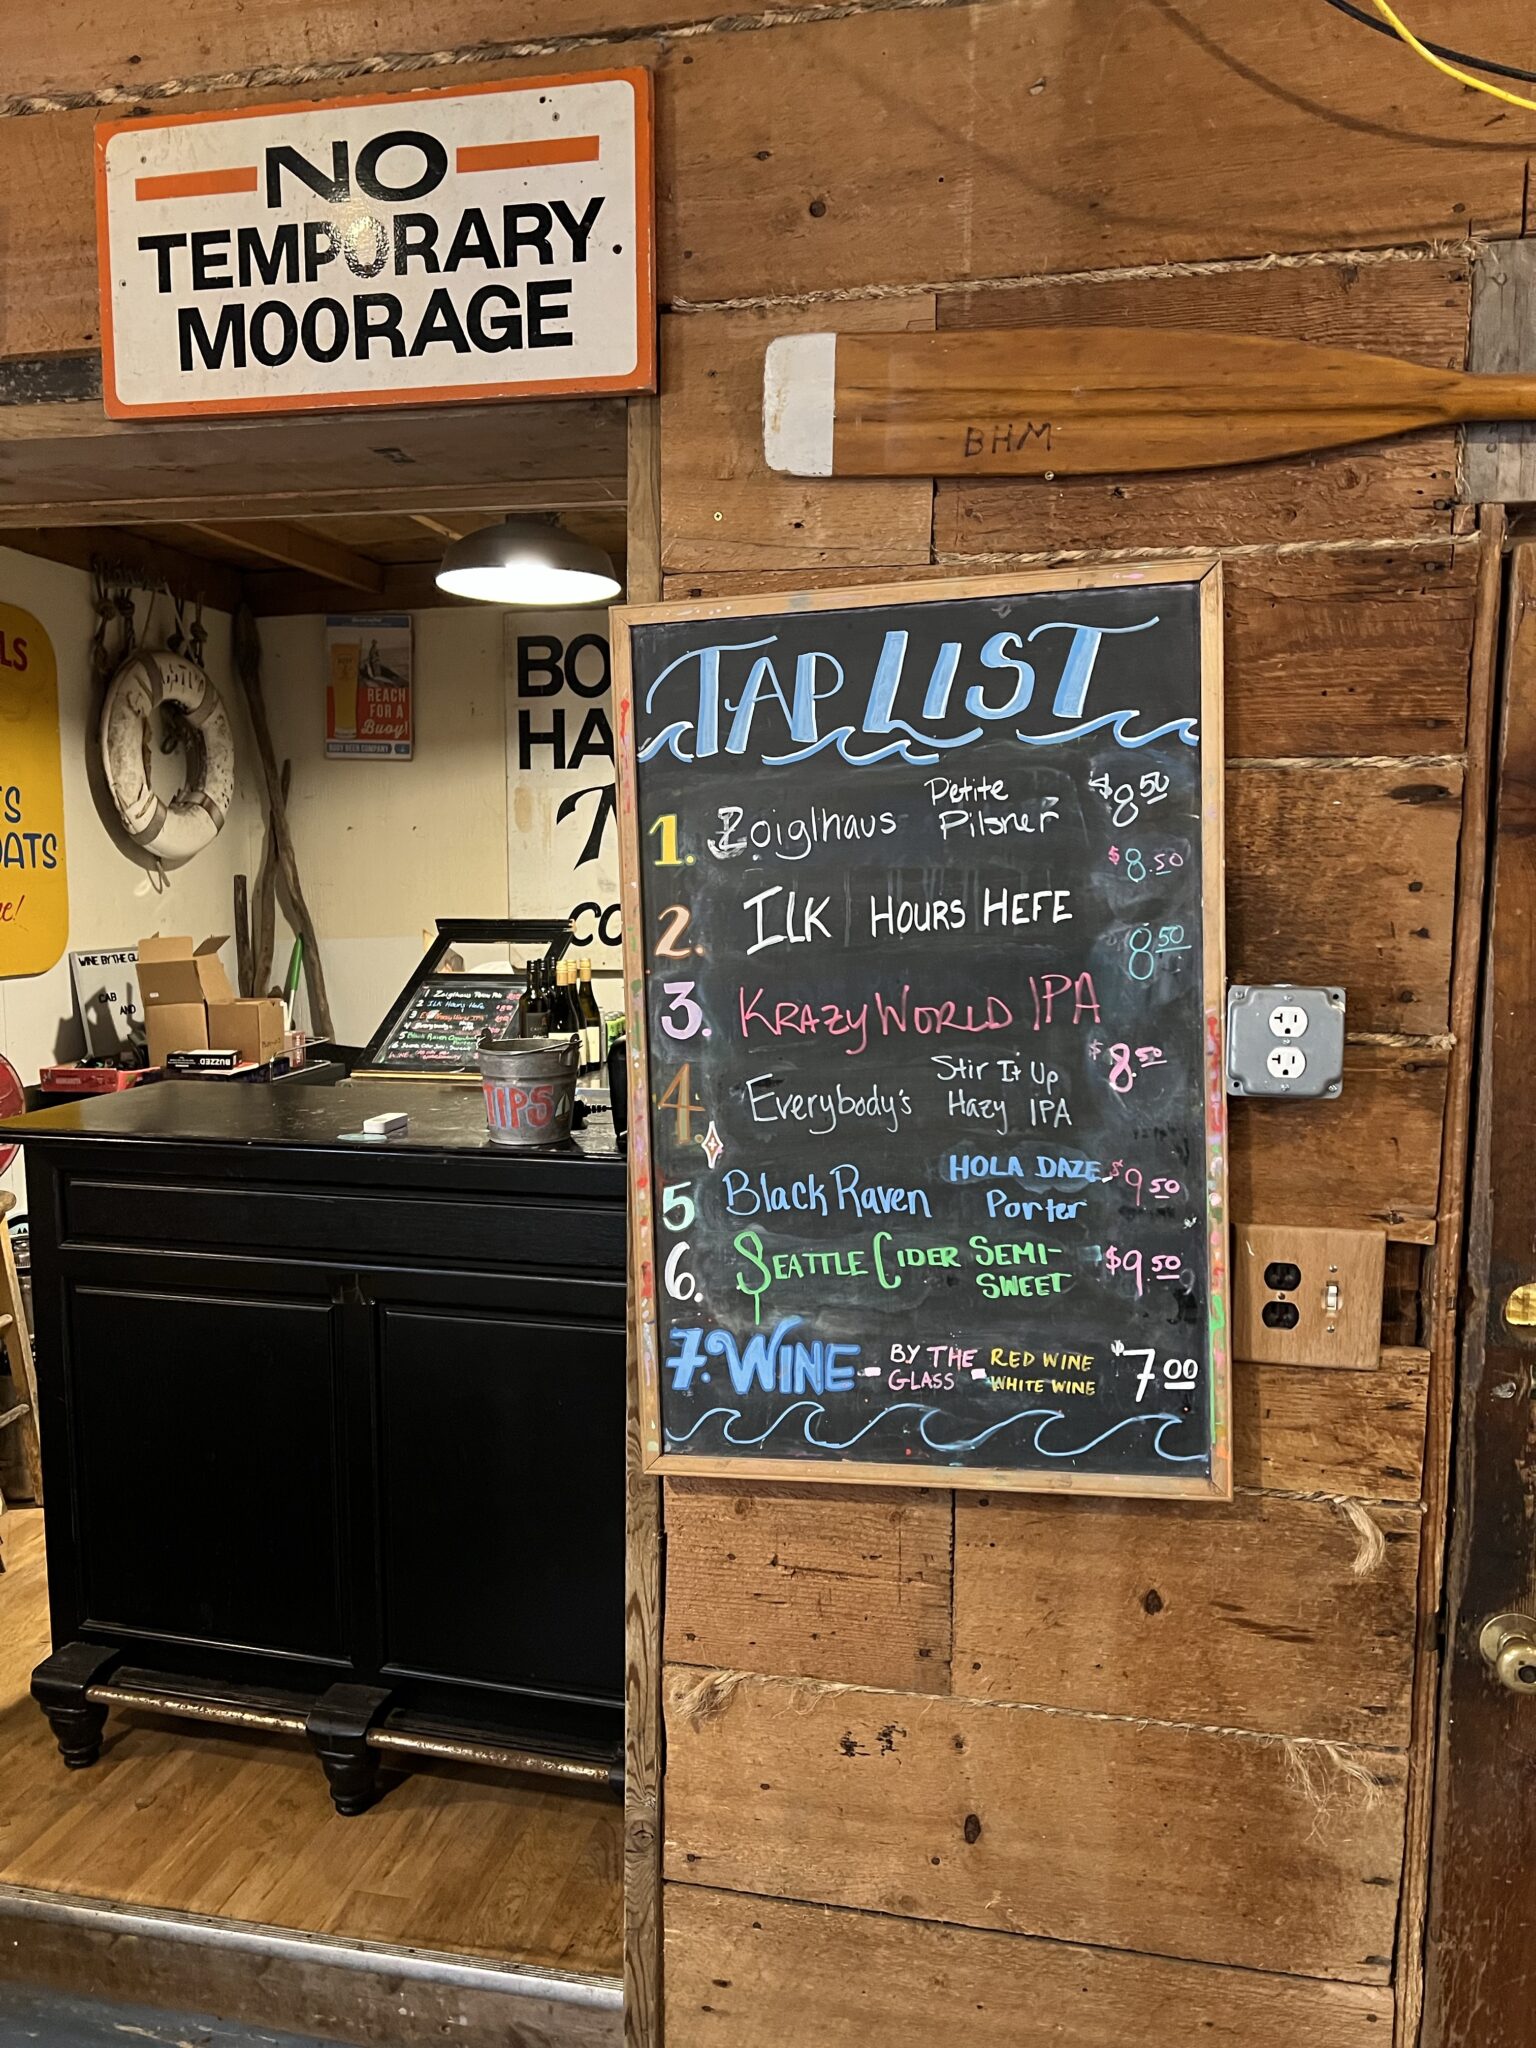 NO
TEMPORARY
MOORAGE
BHM
LS
TS
OATS
e!
REACH
FOR A
Buoy!
BUOY BEER COMPANY
BO
HA
CO
WINE BY THE GLA
CAB
AND
BUZZED
TIPS
TAP LIST
1. Zoiglhaus Petite Pilsner $8.50
2. ILK HOURS HEFE $8.50
3. KRAZY WORLD IPA 8.50
4. Everybody's Stir It Up Hazy IPA $8.50
5 Black Raven HOLA DAZE Porter $9.50
6. SEATTLE CIDER SEMI-SWEET $9.50
7. WINE - BY THE GLASS - RED WINE WHITE WINE $7.00